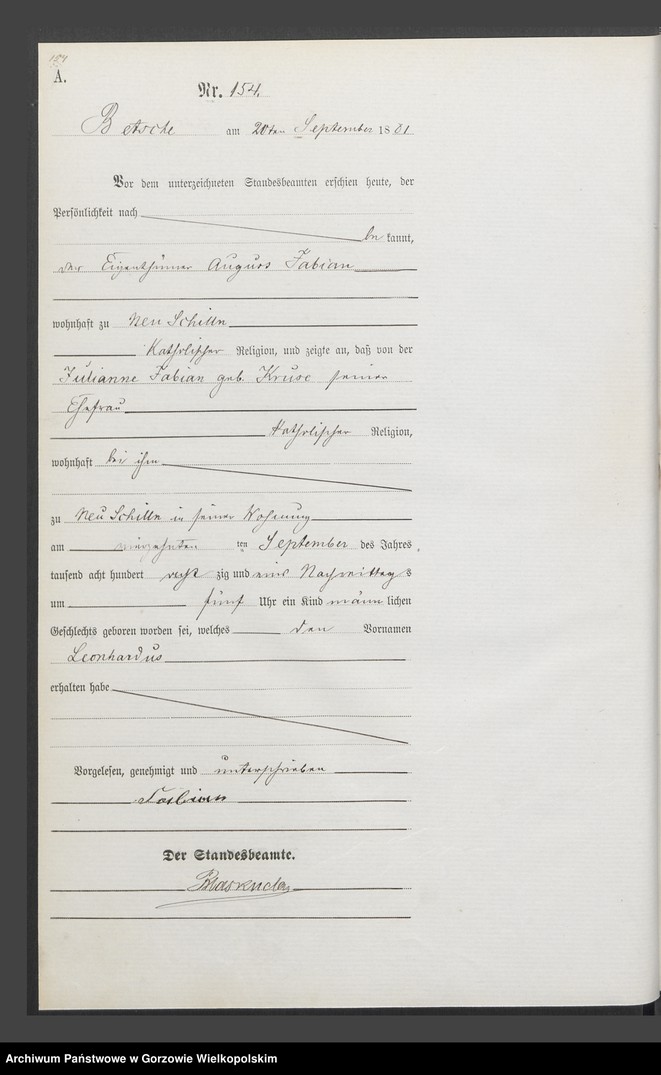 154
A.
Nr. 154.
Betsche am 20ten September 1881
Vor dem unterzeichneten Standesbeamten erschien heute, der
Persönlichkeit nach
be kannt,
der Eigenthümer August Fabian
wohnhaft zu Neu Schilln
Katholischer Religion, und zeigte an, daß von der
Julianne Fabian geb. Kruse seiner
Ehefrau
Katholischer Religion,
wohnhaft bei ihm
zu Neu Schilln in seiner Wohnung
am vierzehnten ten September des Jahres
tausend acht hundert acht zig und eins Nachmittag s
um fünf Uhr ein Kind männ lichen
Geschlechts geboren worden sei, welches den Vornamen
Leonhardus
erhalten habe
Vorgelesen, genehmigt und unterschrieben
Fabian
Der Standesbeamte.
Archiwum Państwowe w Gorzowie Wielkopolskim